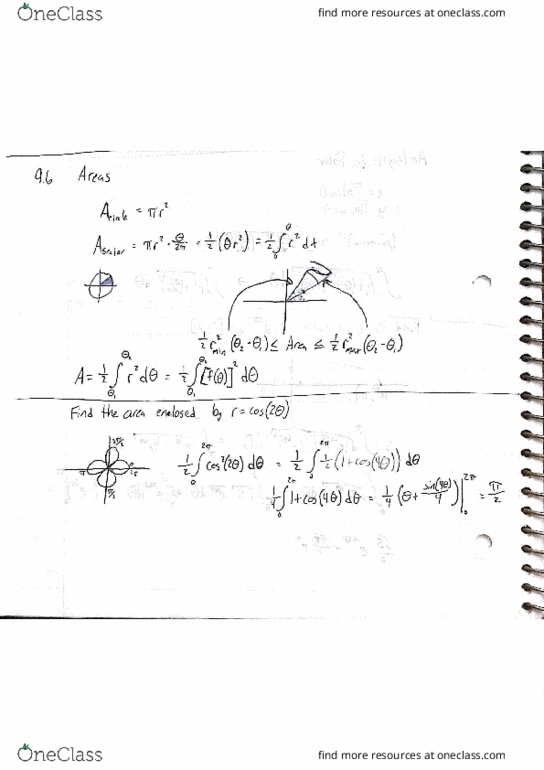 OneClass
find more resources at oneclass.com
9.6 Areas
A = πr²
A = πr² · θ/2π = 1/2 (θr²) = 1/2 ∫₀^θ r² dt
1/2 r²min (θ₂-θ₁) ≤ Area ≤ 1/2 r²max (θ₂-θ₁)
A = 1/2 ∫θ₁^θ₂ r² dθ = 1/2 ∫θ₁^θ₂ [f(θ)]² dθ
Find the area enclosed by r = cos(2θ)
1/2 ∫₀^2π cos²(2θ) dθ = 1/2 ∫₀^2π 1/2 (1+cos(4θ)) dθ
1/4 ∫₀^2π 1+cos(4θ) dθ = 1/4 (θ + sin(4θ)/4) |₀^2π = π/2
OneClass
find more resources at oneclass.com